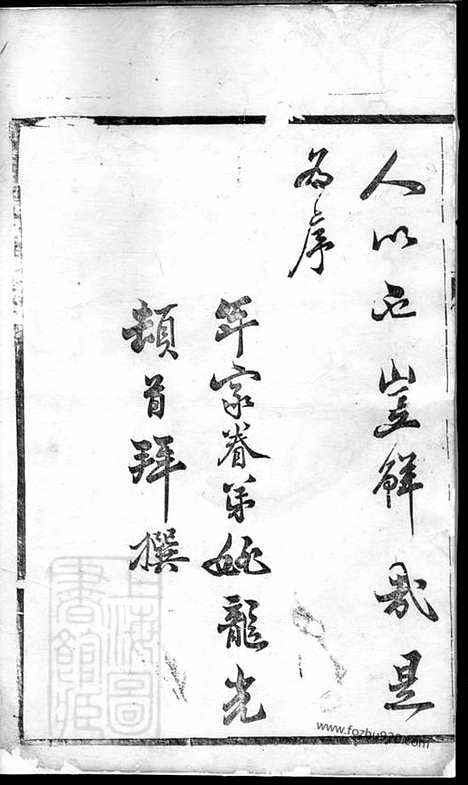 人以死豈鮮哉是
為序
年家眷弟姚龍光
頓首拜撰
上海圖書館藏
www.fozhu920.com